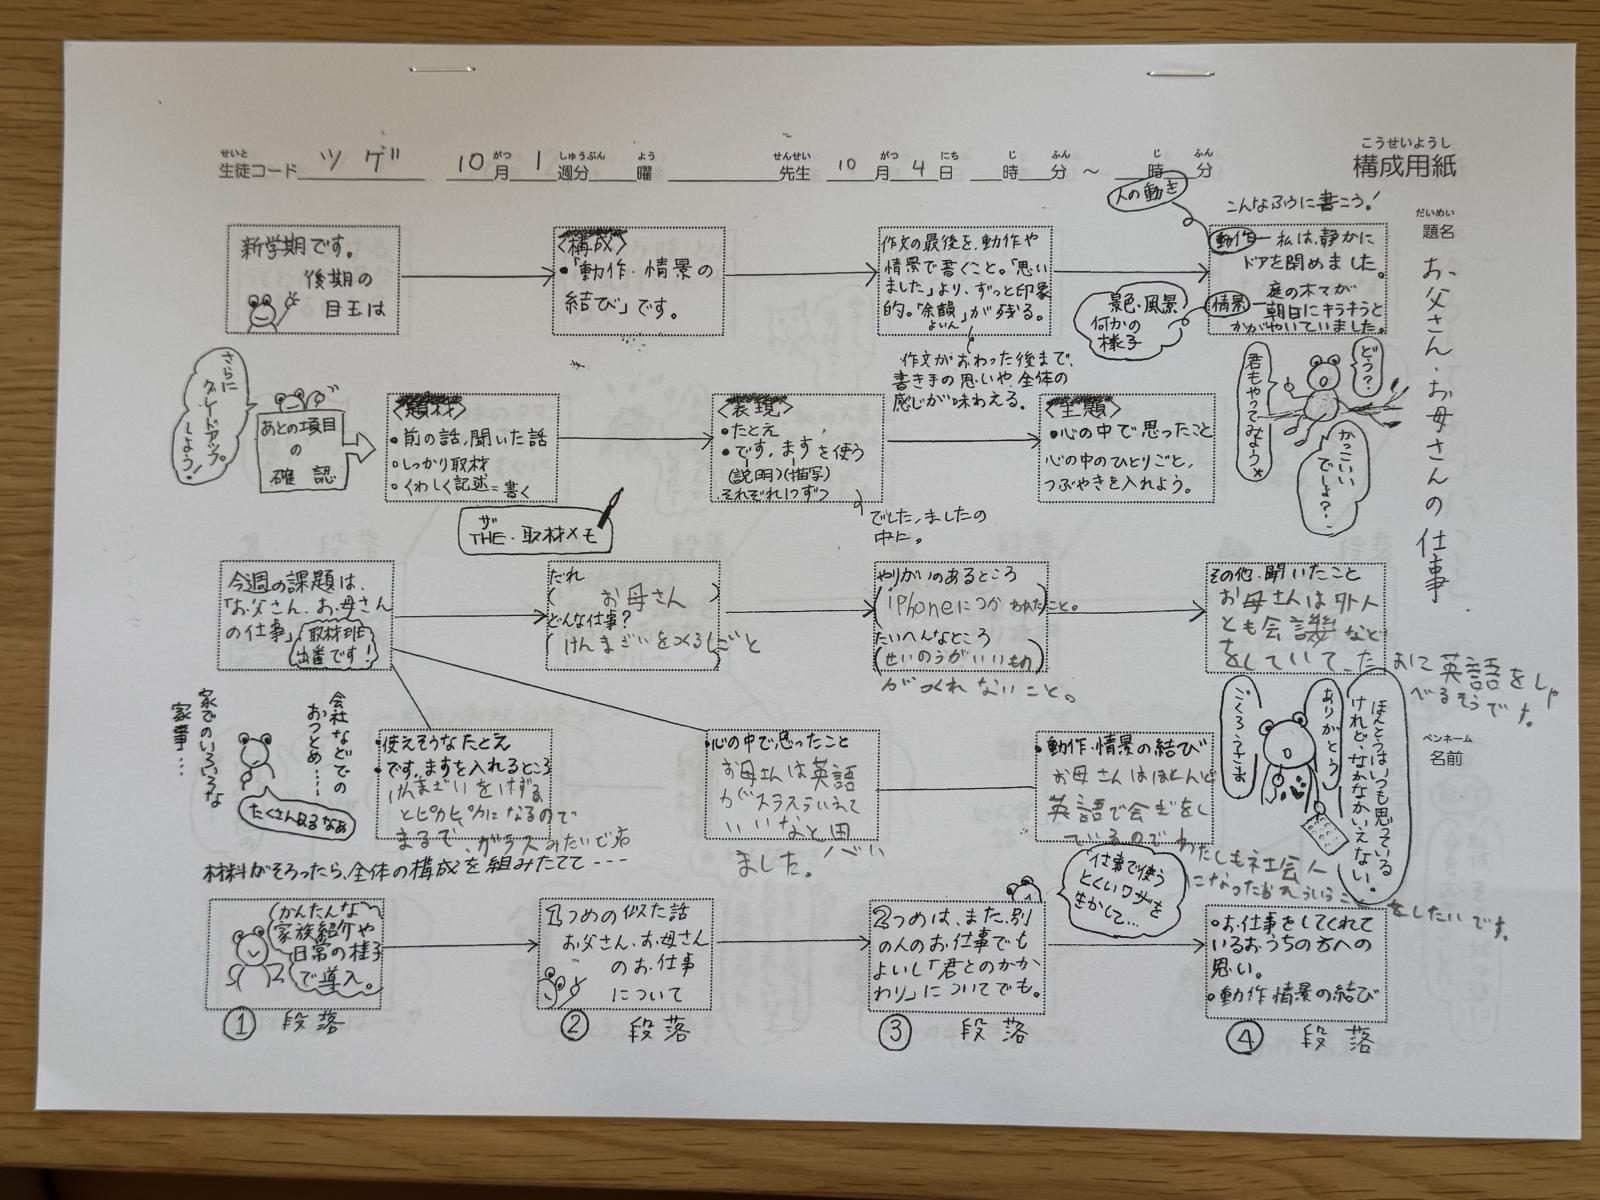 こうせいようし
構成用紙
せいと
生徒コード ツゲ 10月 1週分 曜 先生 10月 4日 時 分 〜 時 分
がつ しゅうぶん よう せんせい がつ にち じ ふん じ ふん
だいめい
題名
お父さん・お母さんの仕事
ペンネーム
名前
新学期です。
後期の
目玉は
〈構成〉
•「動作・情景の
結び」です。
作文の最後を、動作や
情景で書くこと。「思い
ました」より、ずっと印象
的。「余韻」が残る。
よいん
作文がおわった後まで、
書き手の思いや、全体の
感じが味わえる。
人の動き
こんなふうに書こう!
動作 — 私は、静かに
ドアを閉めました。
情景 — 庭の木々が
朝日にキラキラと
かがやいていました。
景色・風景
何かの
様子
どう?
かっこいい
でしょ?
君もやってみよう×
さらに
グレードアップ
しよう!
あとの項目
の
確認
〈題材〉
•前の話、聞いた話
•しっかり取材
•くわしく記述=書く
ザ
THE・取材メモ
〈表現〉
•たとえ
•です、ますを使う
(説明)(描写)
それぞれ1つずつ
でした、ましたの
中に。
〈主題〉
•心の中で思ったこと
心の中のひとりごと、
つぶやきを入れよう。
今週の課題は、
「お父さん、お母さん
の仕事」
取材班
出番です!
だれ
(お母さん)
どんな仕事?
(けんまざいをつくるしごと
やりがいのあるところ
(iphoneにつかわれたこと。
たいへんなところ
(せいのうがいいもの)
がつくれないこと。
その他・聞いたこと
お母さんは外人
とも会議など
をしていて、
おに英語をしゃ
べるそうです。
家でのいろいろな
家事…
会社などでの
おつとめ……
たくさんあるなぁ
•使えそうなたとえ
•です、ますを入れるところ
けんまざいをけずる
とピカピカになるので
まるで、ガラスみたいで
•心の中で思ったこと
お母さんは英語
がスラスラいえて
いいなと思い
ました。
•動作・情景の結び
お母さんはほとんど
英語で会ぎをし
ているのでわたしも社会人
になったら
をしたいです。
ごくろうさま
ありがとう
ほんとうは、いつも思っている
けれど、なかなかいえない。
材料がそろったら、全体の構成を組みたてて----
かんたんな
家族紹介や
日常の様子
で導入。
① 段落
1つめの似た話
お父さん、お母さん
のお仕事
について
② 段落
2つめは、また、別
の人のお仕事でも
よいし「君とのかか
わり」についてでも。
③ 段落
仕事で使う
とくいワザを
生かして…
•お仕事をしてくれて
いるおうちの方への
思い。
•動作・情景の結び
④ 段落